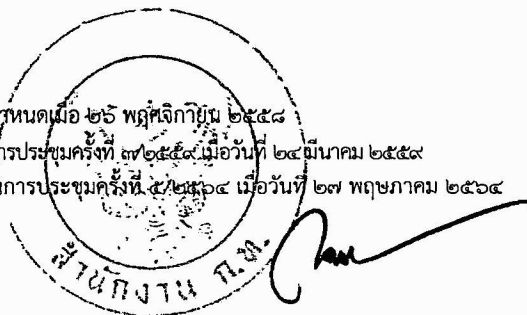 าหนดเมื่อ ๒๖ พฤศจิกายน ๒๕๕๘
ารประชุมครั้งที่ ๓/๒๕๕๙ เมื่อวันที่ ๒๔ มีนาคม ๒๕๕๙
นการประชุมครั้งที่ ๕/๒๕๖๔ เมื่อวันที่ ๒๗ พฤษภาคม ๒๕๖๔
สำนักงาน ก.ท.